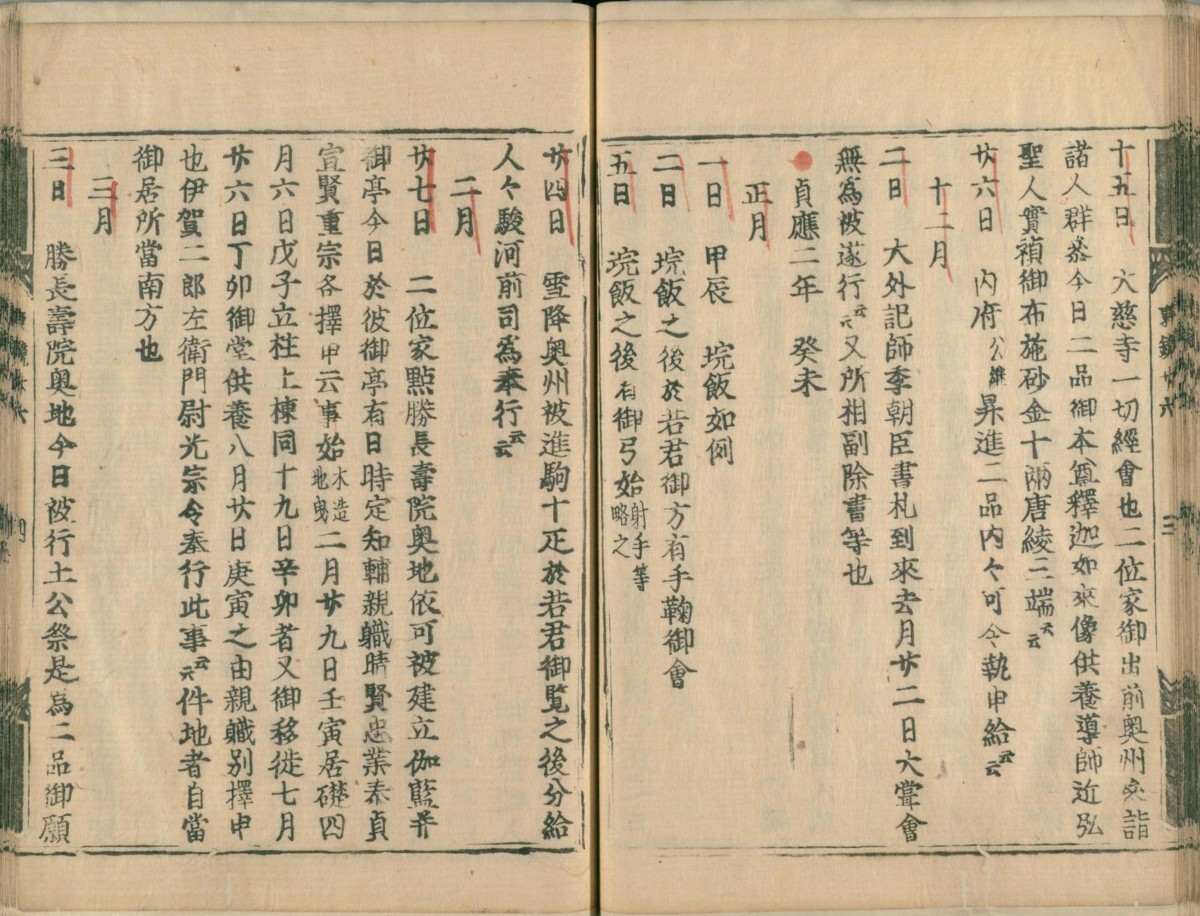 十五日 大慈寺一切經會也二位家御出前奥州參詣
諸人群叅今日二品御本尊釋迦如來像供養導師近弘
聖人實禎御布施砂金十兩唐綾三端云云
廿六日 内府公継昇進二品内々可令執申給云云
十二月
二日 大外記師季朝臣書札到來去月廿二日大甞會
無為被遂行云云又所相副除書等也
貞應二年 癸未
正月
一日 甲辰 垸飯如例
二日 垸飯之後於若君御方有手鞠御會
五日 垸飯之後有御弓始射手等略之
廿四日 雪降奥州被進駒十疋於若君御覧之後分給
人々駿河前司為奉行云云
二月
廿七日 二位家點勝長壽院奥地依可被建立伽藍并
御亭今日於彼御亭有日時定知輔親職晴賢忠業泰貞
宣賢重宗各擇申云事始木造地曳二月廿九日壬寅居礎四
月六日戊子立柱上棟同十九日辛卯者又御移徙七月
廿六日丁卯御堂供養八月廿日庚寅之由親職別擇申
也伊賀二郎左衛門尉光宗令奉行此事云云件地者自當
御居所當南方也
三月
三日 勝長壽院奥地今日被行土公祭是為二品御願